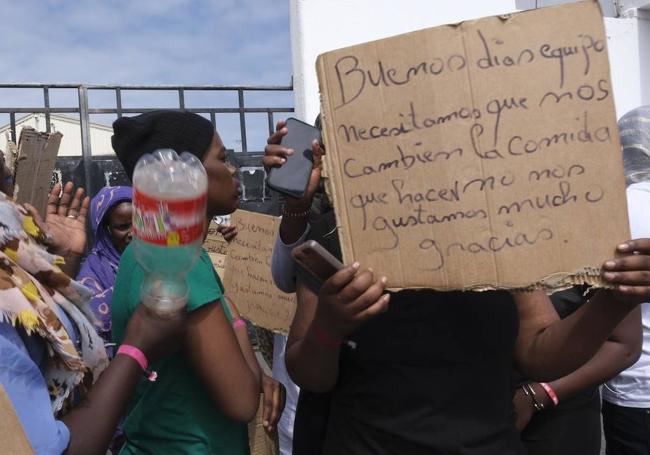 Buenos dias equipo
necesitamos que nos
cambien la comida
que hacer no nos
gustamos mucho
gracias.
Buenos